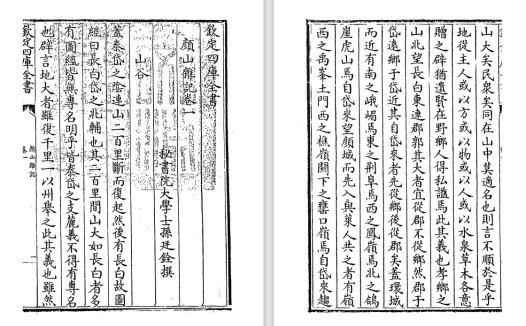 欽定四庫全書
顔山雜記卷一
秘書院大學士孫廷銓撰
山谷
蓋泰岱之陰連山二百里斷而復起然後有長白故圖
經曰長白岱之北輔也其二百里間山大如長白者多
有圖經皆無專名明乎皆泰岱之支麓義不得有專名
也辟言地大者雖復千里一以州舉之此其義也雖然
欽定四庫全書
顔山雜記
卷一
一
山大矣民衆矣同在山中莫適名也則言不順於是乎
地從主人或以方或以物或以人或以水泉草木各意
贈之辟猶遺賢在野鄉人得私諡焉此其義也孝鄉之
山北望長白東連郡郭其大者宜從郡不從鄉然郡于
岱遠鄉于岱近其自岱來者先從鄉後從郡矣蓋環城
而近有南之峨嵋焉東之荆阜焉西之鳳嶺焉北之鴿
崖虎山焉自岱來望顔城而先入與萊人共之者有嶺
西之禹峯土門西之樵嶺闗下之甕口嶺焉自岱來趨